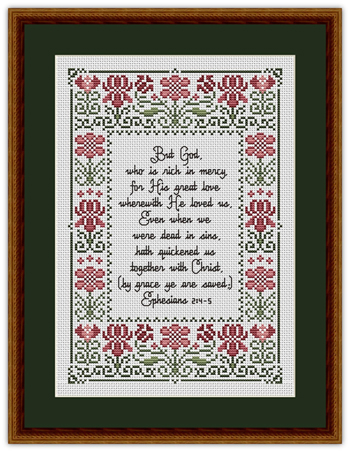 But God,
who is rich in mercy,
for His great love
wherewith He loved us,
Even when we
were dead in sins,
hath quickened us
together with Christ,
(by grace ye are saved;)
Ephesians 2:4-5